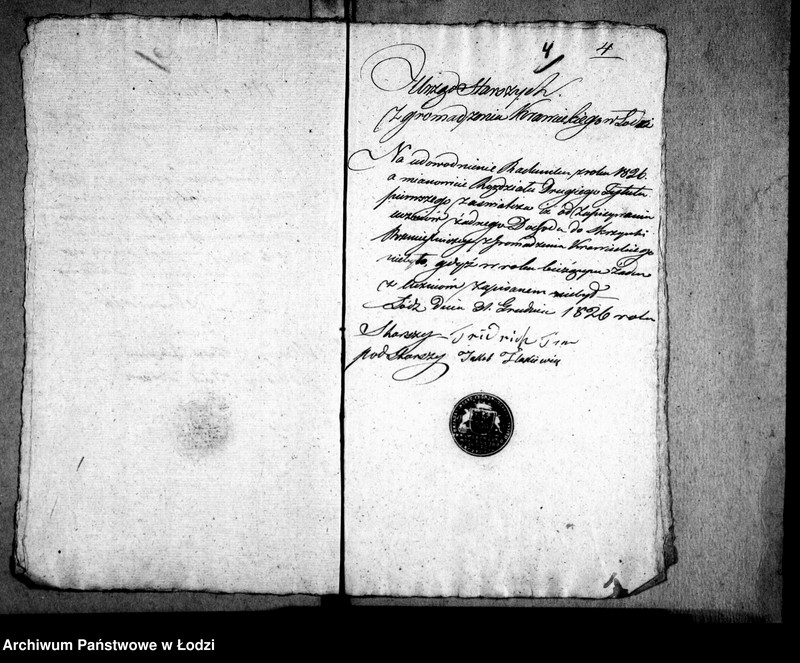 4 4
Urząd Starszych
Zgromadzenia Krawieckiego w Łodzi
Na udowodnienie Rachunku z roku 1826.
a mianowicie Rozdziału Drugiego Tytułu
pierwszego zaświadcza iż od zapisywania
uczniów żadnego Dochodu do Skrzynki
Rzemieślniczey Zgromadzenia Krawieckiego
niebyło, gdyż w roku bieżącym żaden
z Uczniów zapisanem niebył
Łódź dnia 31. Grudnia 1826 roku
Starszy Fridrich
pod Starszy Jakob
Archiwum Państwowe w Łodzi